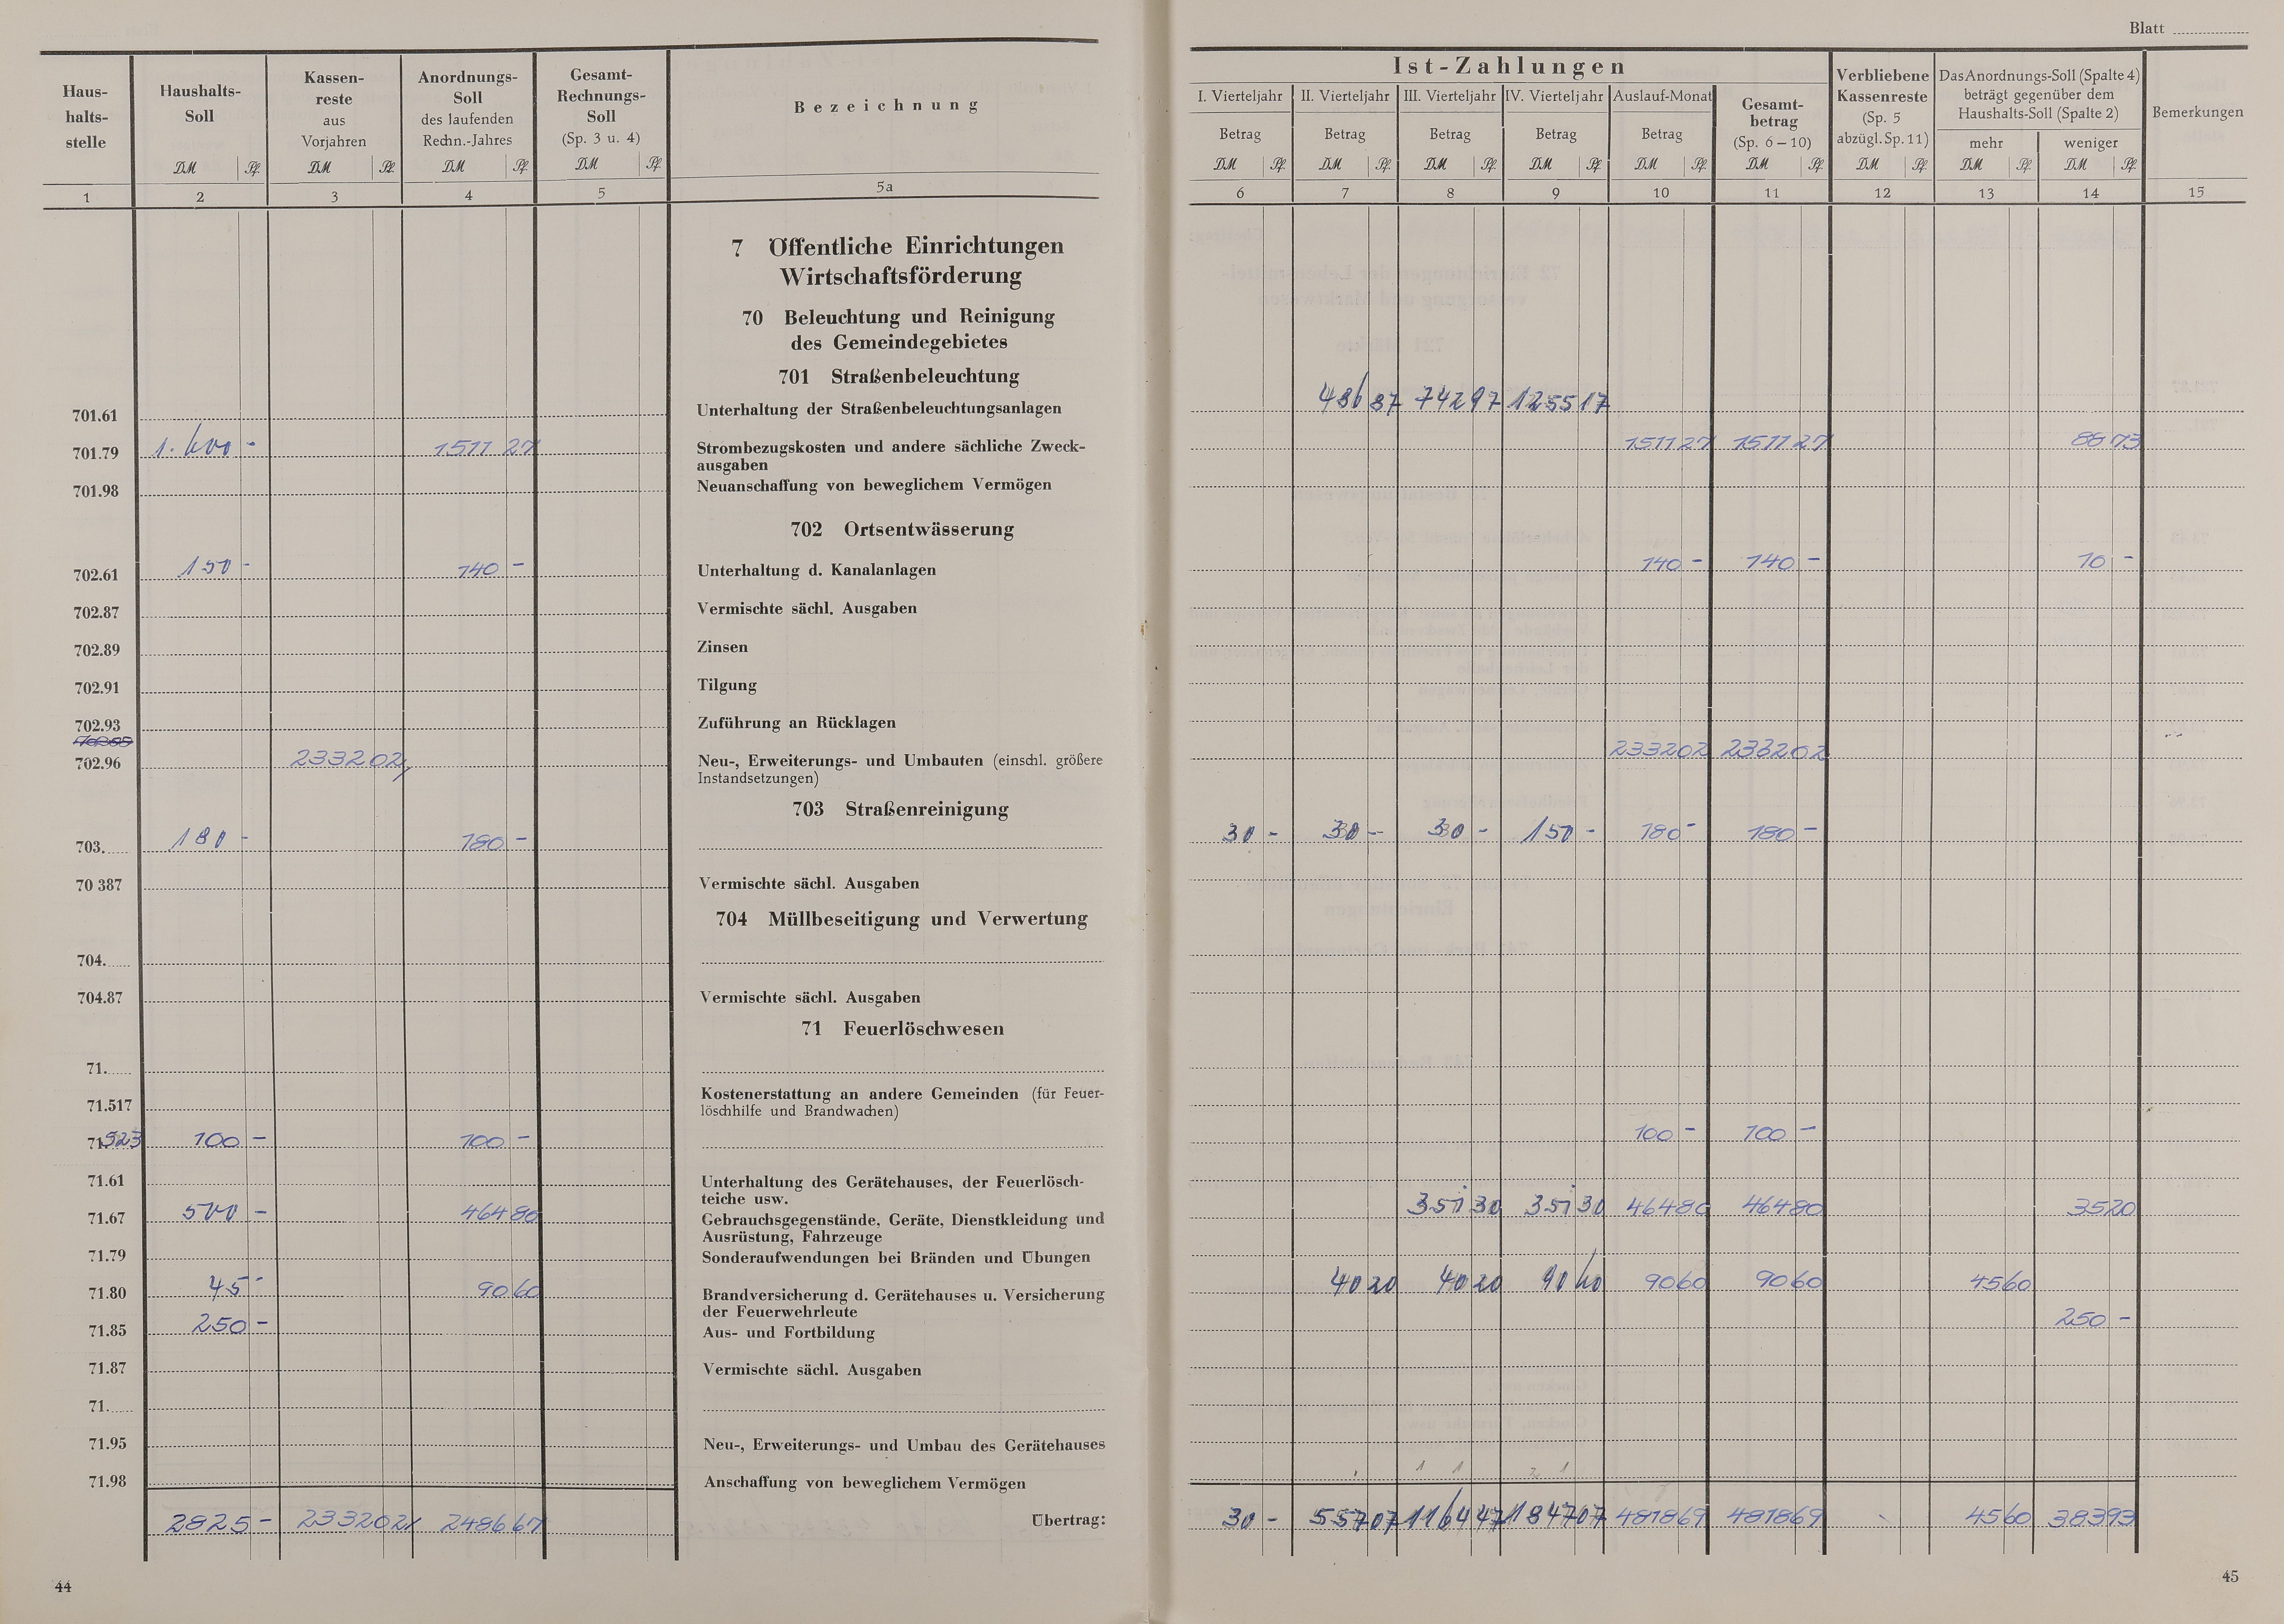 Blatt
Haus-
halts-
stelle
Haushalts-
Soll
DM Pf.
Kassen-
reste
aus
Vorjahren
DM Pf.
Anordnungs-
Soll
des laufenden
Rechn.-Jahres
DM Pf.
Gesamt-
Rechnungs-
Soll
(Sp. 3 u. 4)
DM Pf.
Bezeichnung
1 2 3 4 5 5a
Ist-Zahlungen
I. Vierteljahr II. Vierteljahr III. Vierteljahr IV. Vierteljahr Auslauf-Monat
Betrag Betrag Betrag Betrag Betrag
DM Pf. DM Pf. DM Pf. DM Pf. DM Pf.
Gesamt-
betrag
(Sp. 6–10)
DM Pf.
Verbliebene
Kassenreste
(Sp. 5
abzügl. Sp. 11)
DM Pf.
Das Anordnungs-Soll (Spalte 4)
beträgt gegenüber dem
Haushalts-Soll (Spalte 2)
mehr weniger
DM Pf. DM Pf.
Bemerkungen
6 7 8 9 10 11 12 13 14 15
7 Öffentliche Einrichtungen
Wirtschaftsförderung
70 Beleuchtung und Reinigung
des Gemeindegebietes
701 Straßenbeleuchtung
701.61 Unterhaltung der Straßenbeleuchtungsanlagen 486 87 742 97 1255 17
701.79 1.600 - 1511 27 Strombezugskosten und andere sächliche Zweck- 1511 27 1511 27 88 73
ausgaben
701.98 Neuanschaffung von beweglichem Vermögen
702 Ortsentwässerung
702.61 150 - 140 - Unterhaltung d. Kanalanlagen 140 - 140 - 10 -
702.87 Vermischte sächl. Ausgaben
702.89 Zinsen
702.91 Tilgung
702.93 Zuführung an Rücklagen
702.96 2332 02 Neu-, Erweiterungs- und Umbauten (einschl. größere 2332 02 2332 02
Instandsetzungen)
703 Straßenreinigung
703. 180 - 180 - 30 - 30 - 30 - 150 - 180 - 180 -
70 387 Vermischte sächl. Ausgaben
704 Müllbeseitigung und Verwertung
704.
704.87 Vermischte sächl. Ausgaben
71 Feuerlöschwesen
71.
71.517 Kostenerstattung an andere Gemeinden (für Feuer-
löschhilfe und Brandwachen)
71.523 100 - 100 - 100 - 100 -
71.61 Unterhaltung des Gerätehauses, der Feuerlösch-
teiche usw.
71.67 500 - 464 80 Gebrauchsgegenstände, Geräte, Dienstkleidung und 351 30 351 30 464 80 464 80 35 20
Ausrüstung, Fahrzeuge
71.79 Sonderaufwendungen bei Bränden und Übungen
71.80 45 - 90 60 Brandversicherung d. Gerätehauses u. Versicherung 40 20 40 20 90 60 90 60 90 60 45 60
der Feuerwehrleute
71.85 250 - Aus- und Fortbildung 250 -
71.87 Vermischte sächl. Ausgaben
71.
71.95 Neu-, Erweiterungs- und Umbau des Gerätehauses
71.98 Anschaffung von beweglichem Vermögen
2825 - 2332 02 2486 67 Übertrag: 30 - 557 07 1164 47 1847 07 4818 69 4818 69 45 60 383 93
44
45